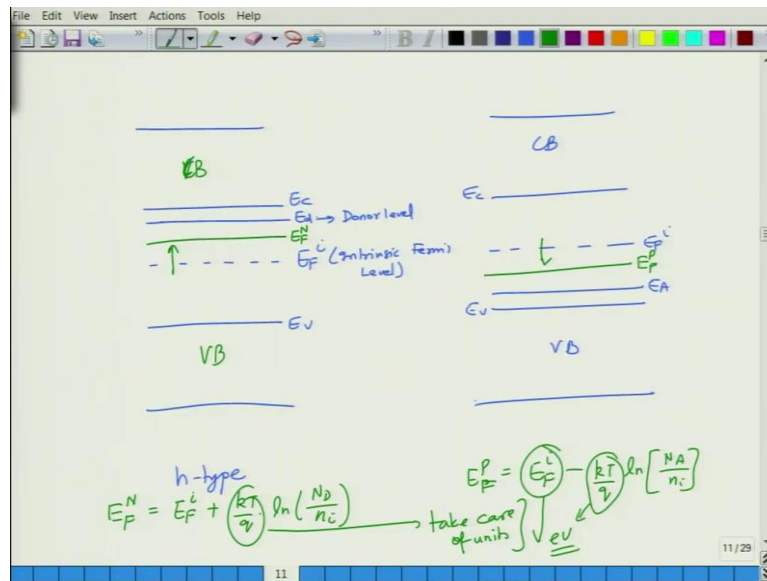 File Edit View Insert Actions Tools Help
B I
CB
Ec
Ed → Donor level
E_F^N
E_F^i (Intrinsic Fermi Level)
Ev
VB
CB
Ec
E_F^i
E_F^P
EA
Ev
VB
n-type
E_F^N = E_F^i + (kT/q) ln(N_D/n_i)
E_F^P = E_F^i - (kT/q) ln[N_A/n_i]
→ take care of units} eV
11
11 / 29